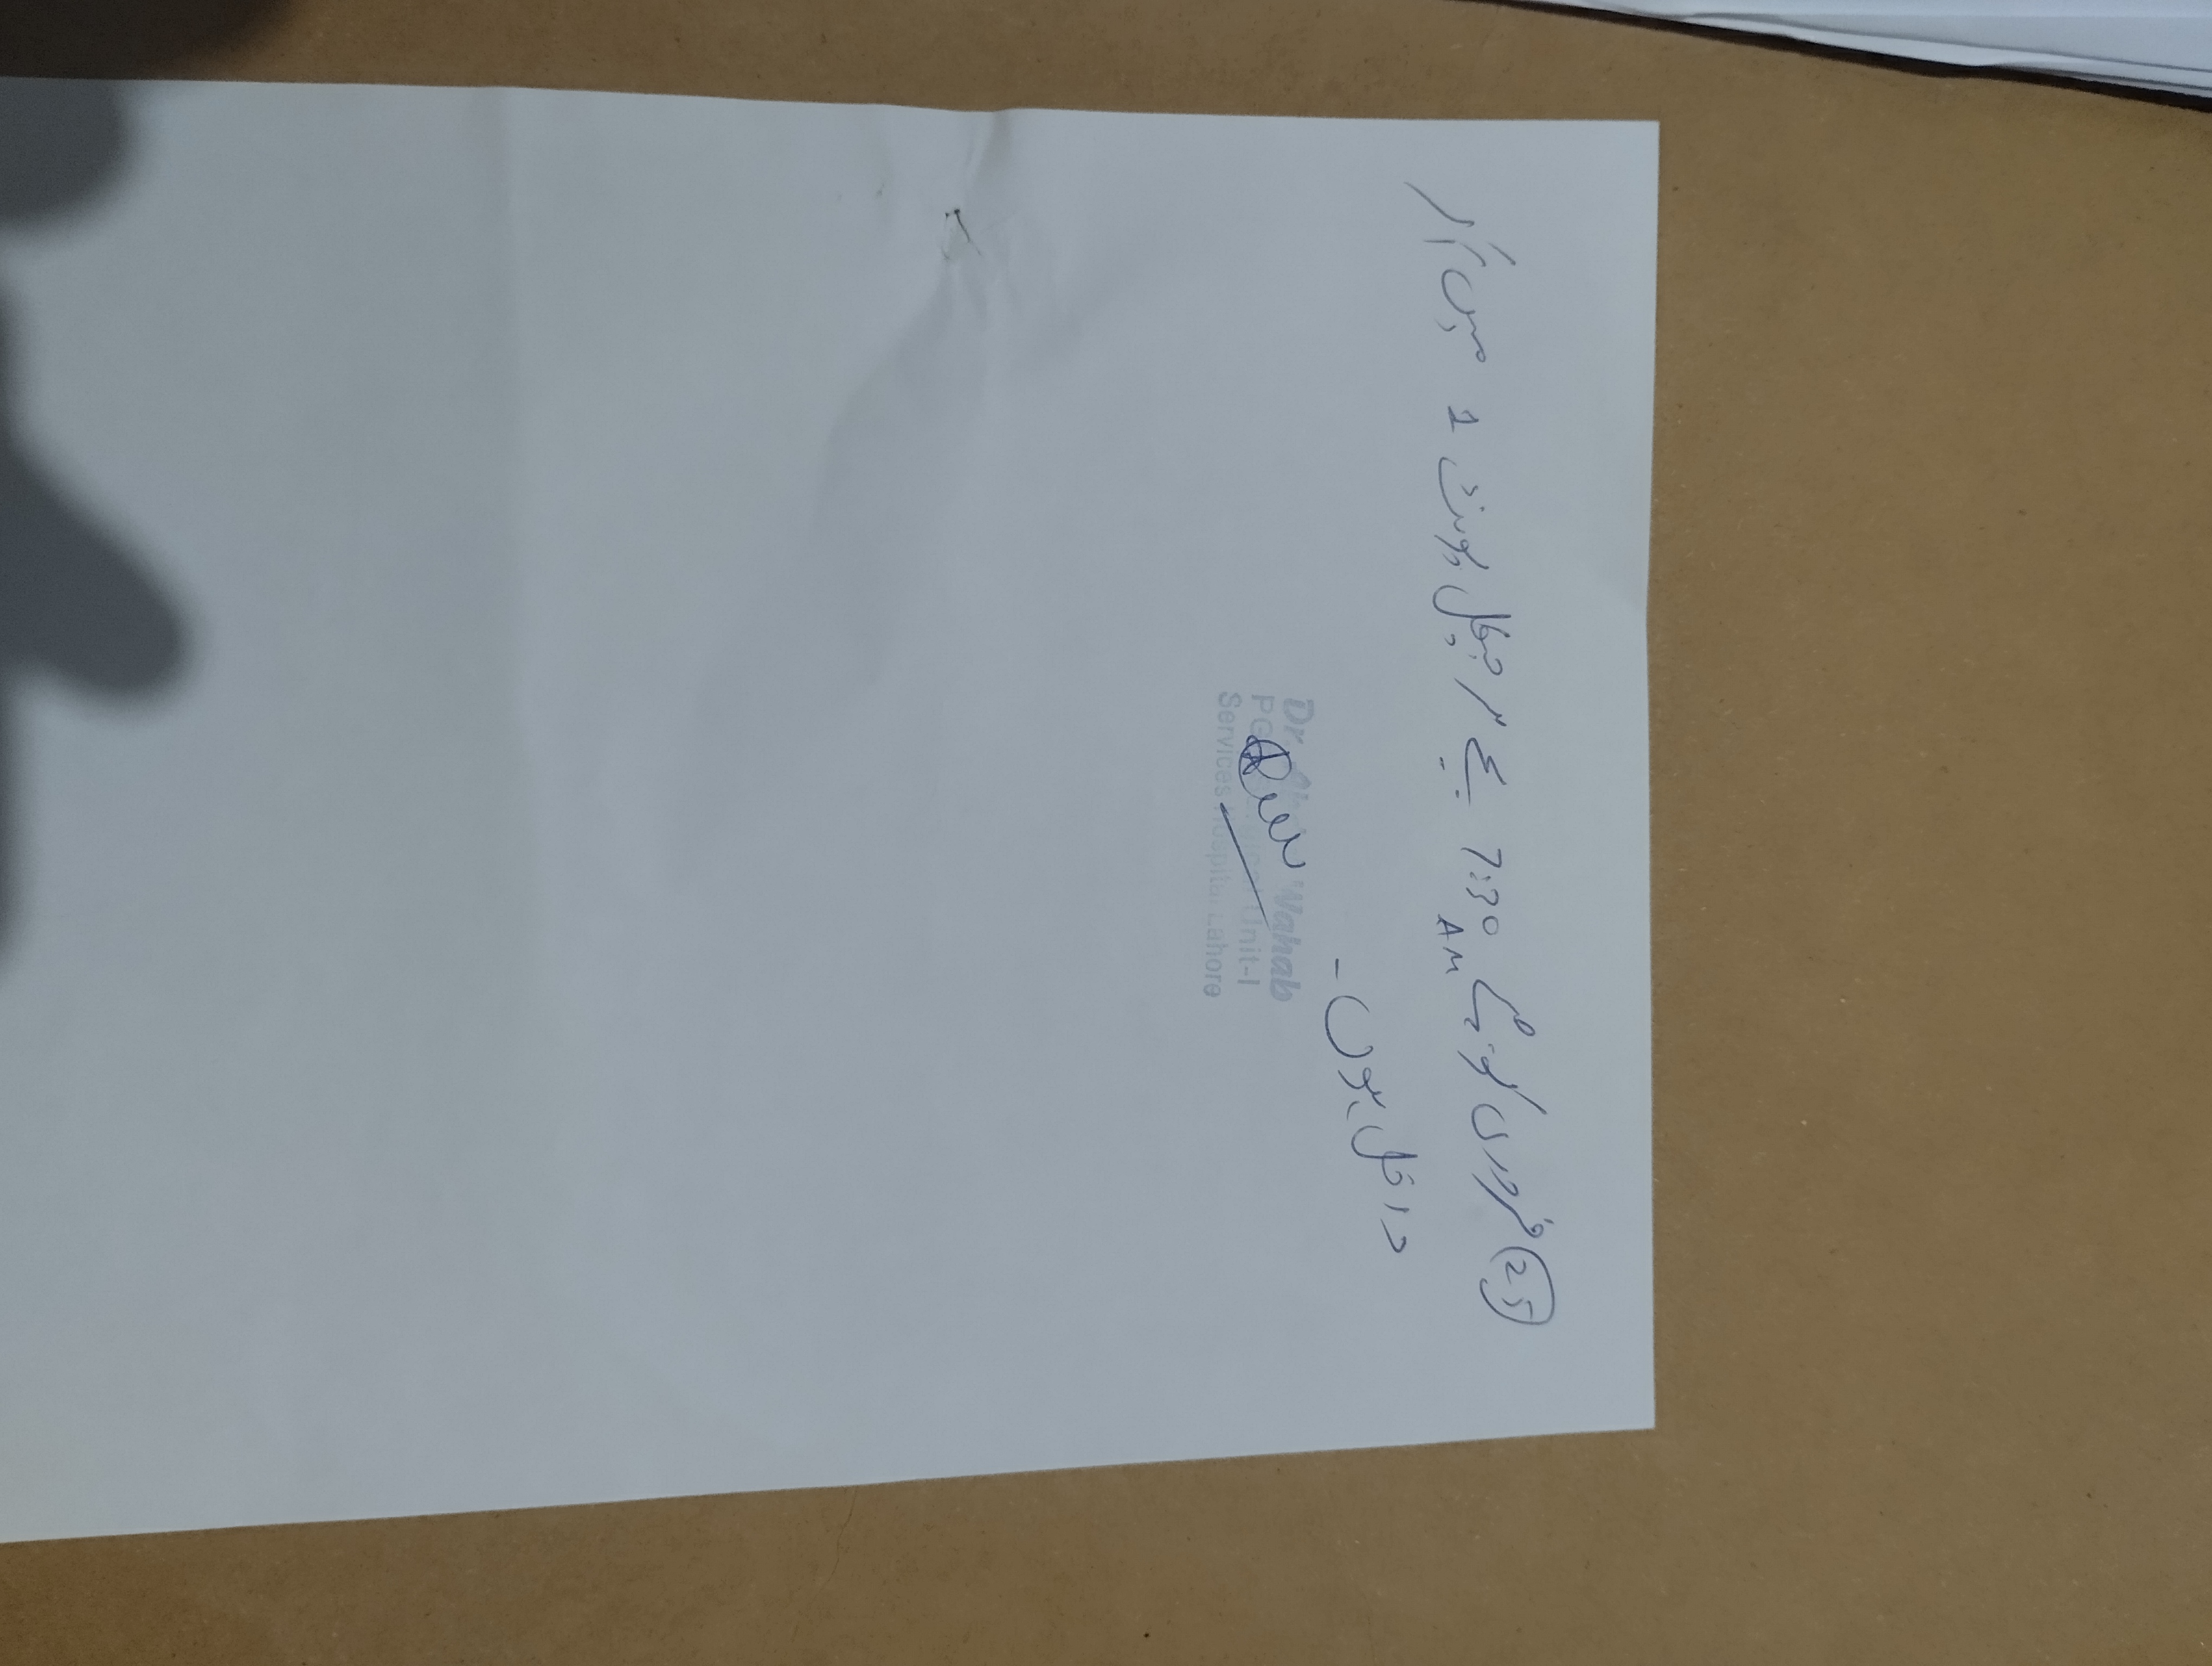 25 فروری کو صبح 7:30 AM بجے سرجیکل یونٹ 1 میں آکر
داخل ہوں۔
Dr Wahab
Unit-I
Services Hospital Lahore